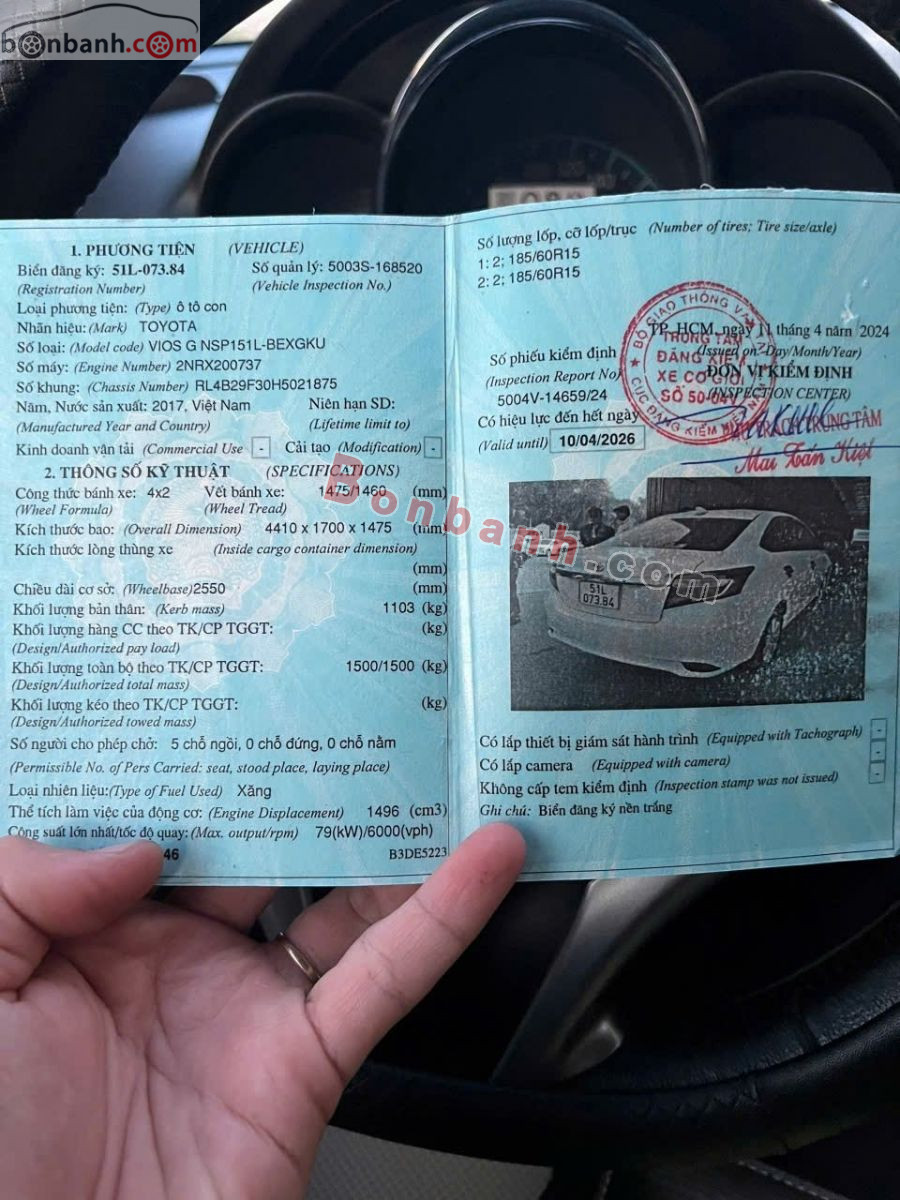 bonbanh.com
1. PHƯƠNG TIỆN (VEHICLE)
Biển đăng ký: 51L-073.84 Số quản lý: 5003S-168520
(Registration Number) (Vehicle Inspection No.)
Loại phương tiện: (Type) ô tô con
Nhãn hiệu: (Mark) TOYOTA
Số loại: (Model code) VIOS G NSP151L-BEXGKU
Số máy: (Engine Number) 2NRX200737
Số khung: (Chassis Number) RL4B29F30H5021875
Năm, Nước sản xuất: 2017, Việt Nam Niên hạn SD:
(Manufactured Year and Country) (Lifetime limit to)
Kinh doanh vận tải (Commercial Use - Cải tạo (Modification) -
2. THÔNG SỐ KỸ THUẬT (SPECIFICATIONS)
Công thức bánh xe: 4x2 Vết bánh xe: 1475/1460 (mm)
(Wheel Formula) (Wheel Tread)
Kích thước bao: (Overall Dimension) 4410 x 1700 x 1475 (mm)
Kích thước lòng thùng xe (Inside cargo container dimension)
(mm)
Chiều dài cơ sở: (Wheelbase) 2550 (mm)
Khối lượng bản thân: (Kerb mass) 1103 (kg)
Khối lượng hàng CC theo TK/CP TGGT: (kg)
(Design/Authorized pay load)
Khối lượng toàn bộ theo TK/CP TGGT: 1500/1500 (kg)
(Design/Authorized total mass)
Khối lượng kéo theo TK/CP TGGT: (kg)
(Design/Authorized towed mass)
Số người cho phép chở: 5 chỗ ngồi, 0 chỗ đứng, 0 chỗ nằm
(Permissible No. of Pers Carried: seat, stood place, laying place)
Loại nhiên liệu:(Type of Fuel Used) Xăng
Thể tích làm việc của động cơ: (Engine Displacement) 1496 (cm3)
Công suất lớn nhất/tốc độ quay: (Max. output/rpm) 79(kW)/6000(vph)
46 B3DE5223
Số lượng lốp, cỡ lốp/trục (Number of tires; Tire size/axle)
1: 2; 185/60R15
2: 2; 185/60R15
TP. HCM, ngày 11 tháng 4 năm 2024
(Issued on: Day/Month/Year)
Số phiếu kiểm định ĐƠN VỊ KIỂM ĐỊNH
(Inspection Report No) (INSPECTION CENTER)
5004V-14659/24
Có hiệu lực đến hết ngày
(Valid until) 10/04/2026
BỘ GIAO THÔNG VẬN
TRUNG TÂM
ĐĂNG KIỂM
XE CƠ GIỚI
SỐ 50-04V
CỤC ĐĂNG KIỂM VIỆT NAM
TRUNG TÂM
Mai Toán Kiệt
51L
073.84
Bonbanh.com
Có lắp thiết bị giám sát hành trình (Equipped with Tachograph) -
Có lắp camera (Equipped with camera) -
Không cấp tem kiểm định (Inspection stamp was not issued) -
Ghi chú: Biển đăng ký nền trắng